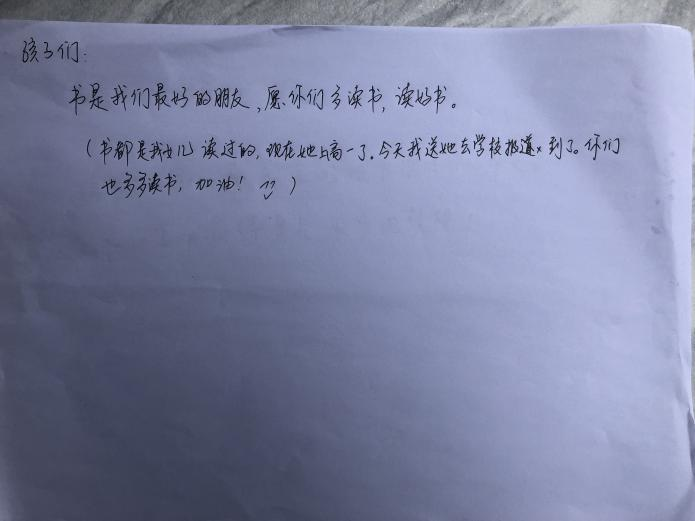 孩子们:
书是我们最好的朋友,愿你们多读书,读好书。
(书都是我女儿读过的,现在她上高一了。今天我送她去学校报道x到了。你们
也多多读书,加油!)